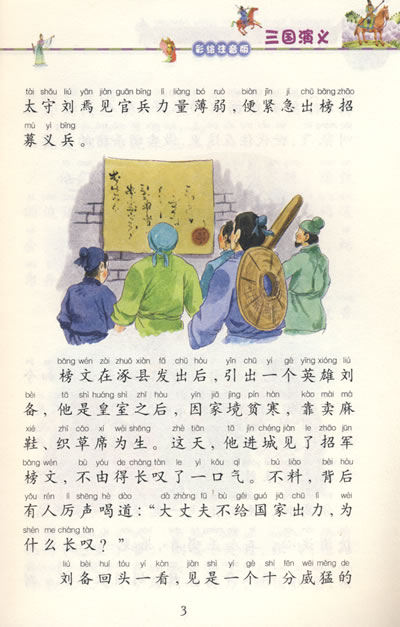 三国演义
彩绘注音版
tài shǒu liú yān jiàn guān bīng lì liàng bó ruò biàn jǐn jí chū bǎng zhāo
太守刘焉见官兵力量薄弱，便紧急出榜招
mù yì bīng
募义兵。
bǎng wén zài zhuō xiàn fā chū hòu yǐn chū yí gè yīng xióng liú
榜文在涿县发出后，引出一个英雄刘
bèi tā shì huáng shì zhī hòu yīn jiā jìng pín hán kào mài má
备，他是皇室之后，因家境贫寒，靠卖麻
xié zhī cǎo xí wéi shēng zhè tiān tā jìn chéng jiàn le zhāo jūn
鞋、织草席为生。这天，他进城见了招军
bǎng wén bù yóu de cháng tàn le yì kǒu qì bú liào bèi hòu
榜文，不由得长叹了一口气。不料，背后
yǒu rén lì shēng hè dào dà zhàng fū bù gěi guó jiā chū lì wèi
有人厉声喝道：“大丈夫不给国家出力，为
shén me cháng tàn
什么长叹？”
liú bèi huí tóu yí kàn jiàn shì yí gè shí fēn wēi měng de
刘备回头一看，见是一个十分威猛的
3